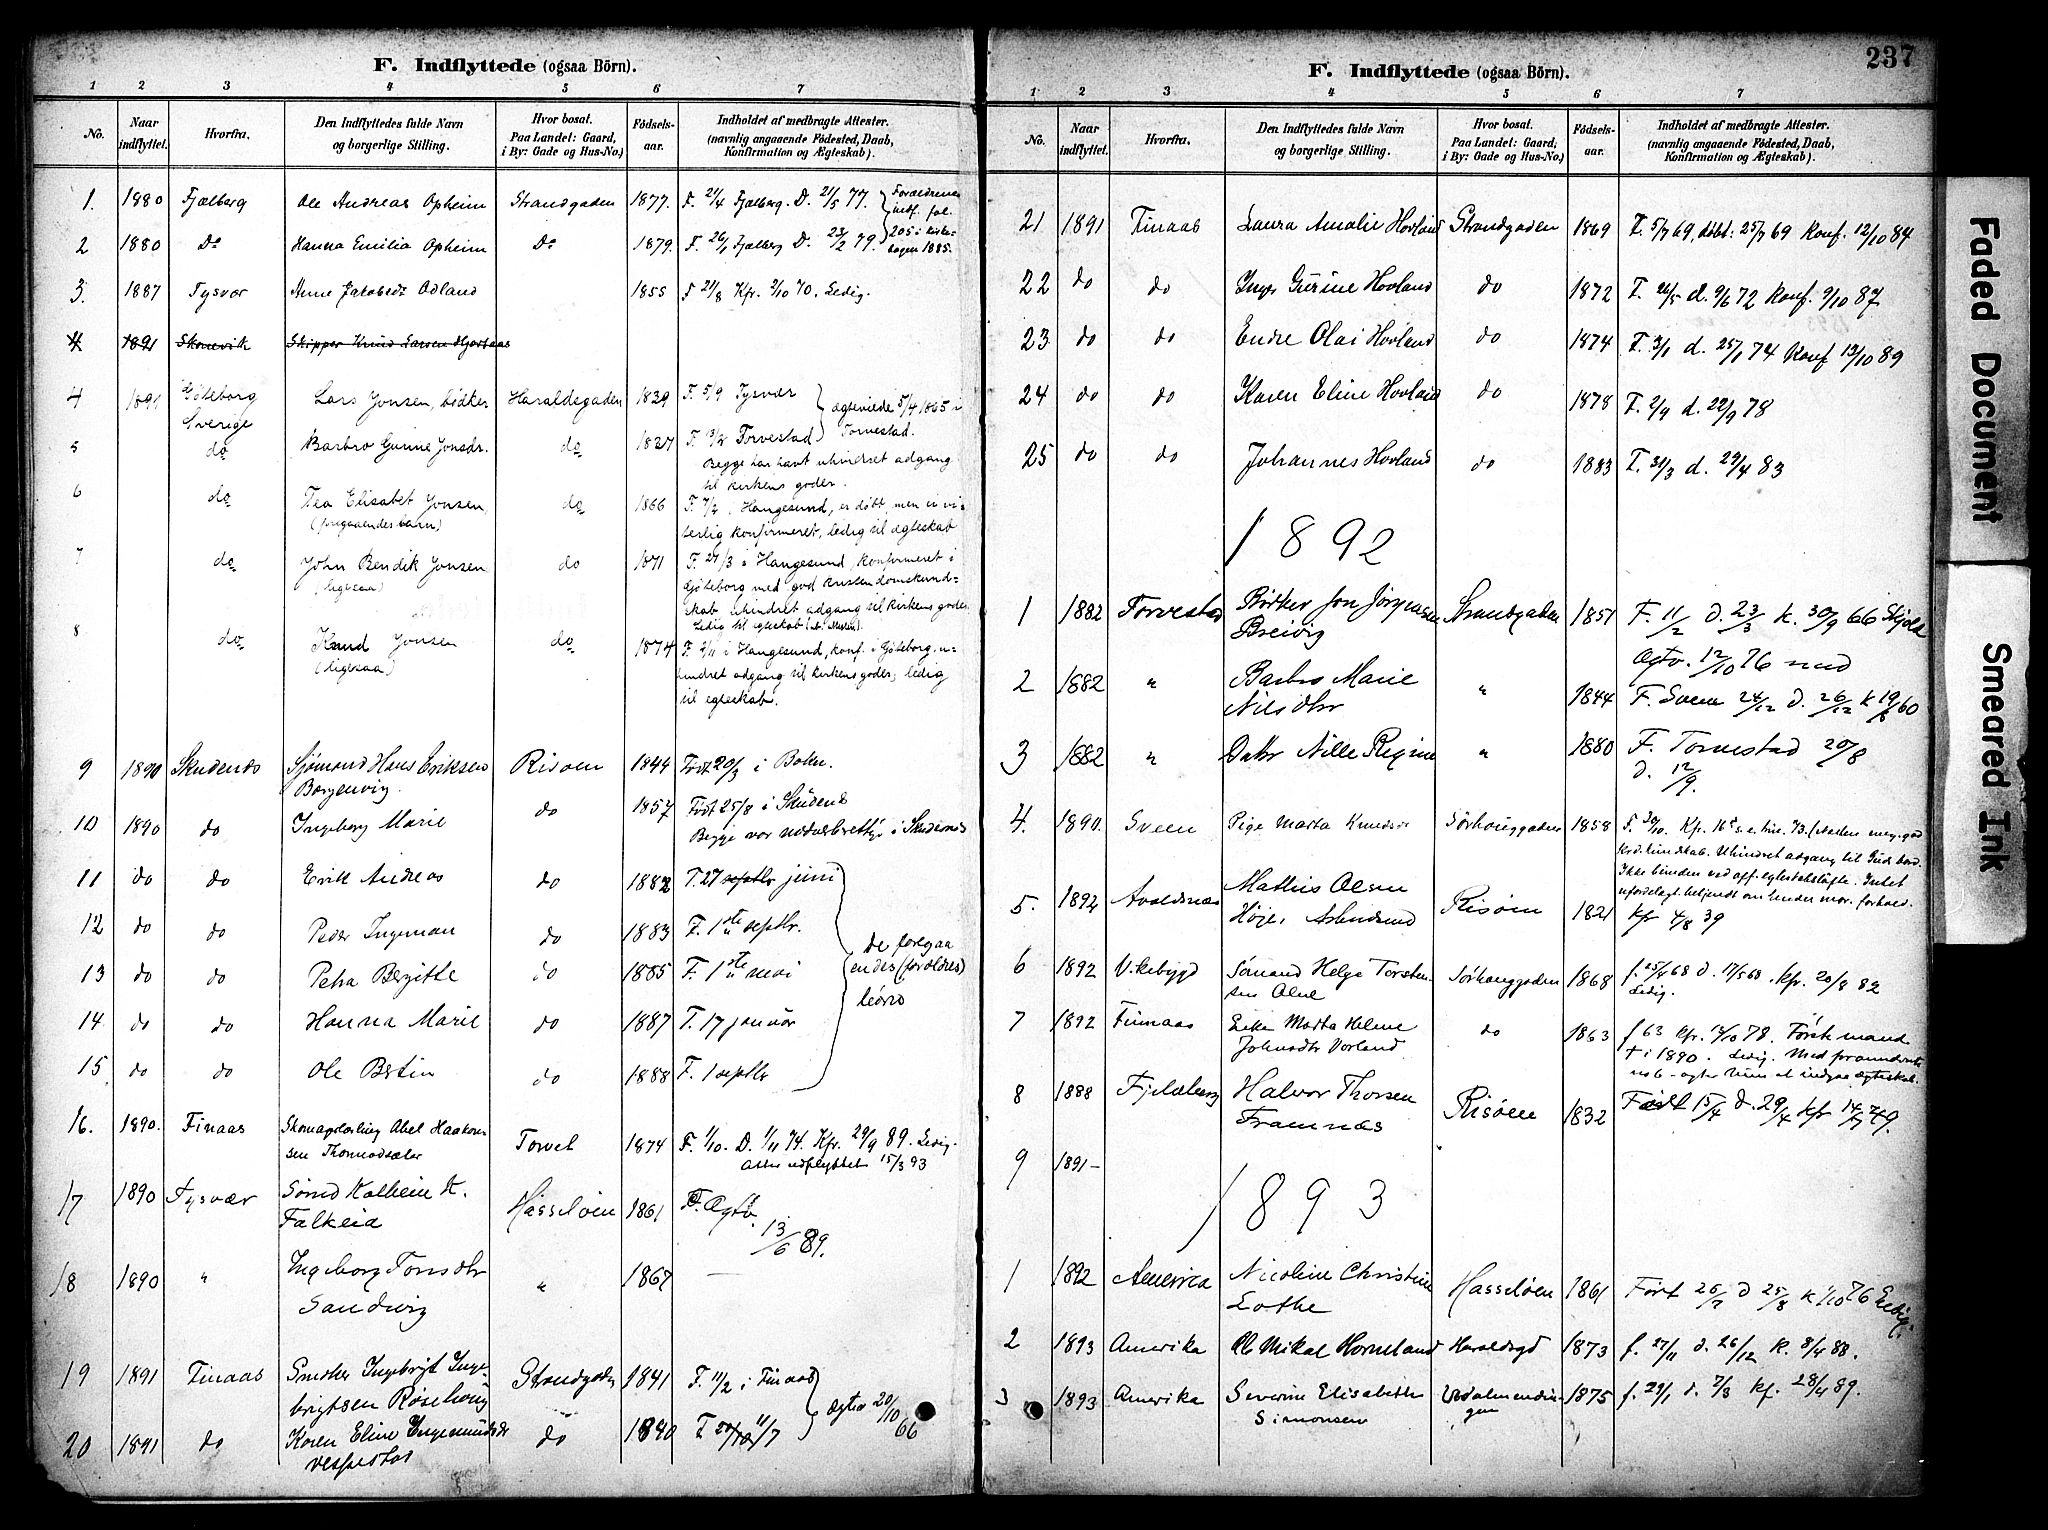 F. Indflyttede (ogsaa Börn).
1 2 3 4 5 6 7
No. Naar indflyttet. Hvorfra. Den Indflyttedes fulde Navn og borgerlige Stilling. Hvor bosat. Paa Landet: Gaard, i By: Gade og Hus-No.) Fødsels-aar. Indholdet af medbragte Attester. (navnlig angaaende Fødested, Daab, Konfirmation og Ægteskab).
1. 1880 Fjelberg Ole Andreas Opheim Strandgaden 1877. F. 21/4 Fjelberg. D. 21/5 77. Forældrenes indf. fol. 205 i kirkebogen 1885.
2 1880 Do Hanna Emilia Opheim Do 1879. F. 26/1 Fjelberg D. 23/2 79.
3. 1887 Tysvær Anne Jakobsdt Odland 1855 F 21/8 Kfr. 2/10 70. Ledig.
4 1891 Skonevik Skipper Knud Larsen
4 1891 Göteborg Sverige Lars Jonsen, bødker Haraldsgaden 1839 F. 5/9 Tysvær ægteviede 5/4 1865 i Torvestad.
5 do Barbro Gurine Jonsdr. do 1837 F. 13/2 Torvestad
Begge har havt uhindret adgang
til kirkens goder.
6 do Tea Elisabet Jonsen (foregaaendes barn) do 1866 F. 7/2, Haugesund, er døbt, men ei vi-
terlig konfirmeret, ledig til ægteskab
7 do John Bendik Jonsen (ligesaa) do 1871 F. 27/3 i Haugesund, konfirmeret i
Göteborg med god kristendomskund-
skab uhindret adgang til kirkens goder.
Ledig til egteskab
8 do Knud Jonsen (ligesaa) do 1874 F. 2/11 i Haugesund, konf. i Göteborg, u-
hindret adgang til kirkens goder; ledig
til egteskab.
9 1890 Skudenes Sjømand Hans Eriksen Borgenvig. Risøen 1844 Født 20/3 i Bokn.
10 1890 do Ingeborg Marie do 1857 Født 25/8 i Skudenes
Begge var i Skudenes
11 do do Erik Andreas do 1882 F. 27 septbr juni
12 do do Peder Ingeman do 1883 F. 1ste septbr.
13 do do Petra Bergitte do 1885 F. 1ste mai
14 do do Hanna Marie do 1887 F. 17 januar
15 do do Ole Bertin do 1888 F. 1 septbr
de foregaa
endes (forældres)
børn
16. 1890. Finaas Skomagerlærling Abel Haakon-
sen Thormodsæter Torvet 1874 F. 1/10. D. 1/11 74. Kfr. 29/9 89. Ledig.
Atter udflyttet 15/3 93
17 1890 Tysvær Sømd Kolbein K. Falkeid Hasseløen 1861 F. Ægtv. 13/6 89.
18 1890 " Ingeborg Tonsdtr Sandvig " 1867 —
19 1891 Finaas Smed Ingebrigt Inge-
brigtsen Røsehoug Strandgaden 1841 F. 11/2 i Finaas ægtev 20/10 66
20 1891 do Karen Eline Ingemundsdr
Vespestad do 1840 F. 11/7

F. Indflyttede (ogsaa Börn).
237
1 2 3 4 5 6 7
No. Naar indflyttet. Hvorfra. Den Indflyttedes fulde Navn og borgerlige Stilling. Hvor bosat. Paa Landet: Gaard, i By: Gade og Hus-No.) Fødsels-aar. Indholdet af medbragte Attester. (navnlig angaaende Fødested, Daab, Konfirmation og Ægteskab).
21 1891 Finaas Laura Amalie Hovland Strandgaden 1869 F. 5/7 69, døbt: 25/7 69 Konf. 12/10 84
22 do do Inger Gurine Hovland do 1872 F. 26/5 d. 9/6 72 Konf. 9/10 87
23 do do Endre Olai Hovland do 1874 F. 3/1 d. 25/1 74 Konf 13/10 89
24 do do Karen Eline Hovland do 1878 F. 2/9 d. 22/9 78
25 do do Johannes Hovland do 1883 F. 31/3 d. 29/4 83
1892
1 1882 Torvestad Bødker Jon Jörgensen Breivig Strandgaden 1851 F. 11/2 d. 23/3 k. 30/9 66 Skjold
Ægtv. 12/10 76 med
2 1882 " Barbro Marie Nilsdtr " 1844 F. Sveen 24/12 d. 26/12 k 60
3 1882 " Datr Nille Regine " 1880 F. Torvestad 20/8
d. 12/9.
4. 1890. Sveen Pige Marta Knudsdr Sørhouggaden 1858 F. 30/10. Kfr. 73. (Næsten meg. god
Krd.kundskab. Uhindret adgang til Guds bord.
Ikke bunden ved off. egteskabsløfte. Intet
ufordelagt. bekjendt om hendes mor. forhold.
5. 1892 Avaldsnæs Mathias Olsen Risøen 1821 Kfr 4/8 39
6 1892 Vikebygd Sømand Helge Torsten-
sen Alne Sørhauggaden 1868 f. 25/4 68 d. 17/5 68. Kfr. 20/8 82
Ledig.
7 1892 Finnaas Enke Marta Helene
Johnsdtr Vorland do 1863 f 63 Kfr. 13/10 78. Første mand
† i 1890. Ledig.
8 1888 Fjeldberg Halvor Thorsen Framnæs Risøen 1832 Født 15/4 d. 29/4 Kfr 14/7 49.
9 1891-
1893
1 1892 Amerika Nicoline Christine Lothe Hasseløen 1861 Født 26/7 d 25/8 k 1/10 76 Ledig.
2 1893 Amerika Ole Mikal Horneland Haraldsgd 1873 f. 27/11 d. 26/12 k. 8/4 88.
3 1893 Amerika Severine Elisabeth
Simonsen Udalmendin-
gen 1875 f. 29/1 d. 7/3 kf. 28/4 89.
Faded Document
Smeared Ink